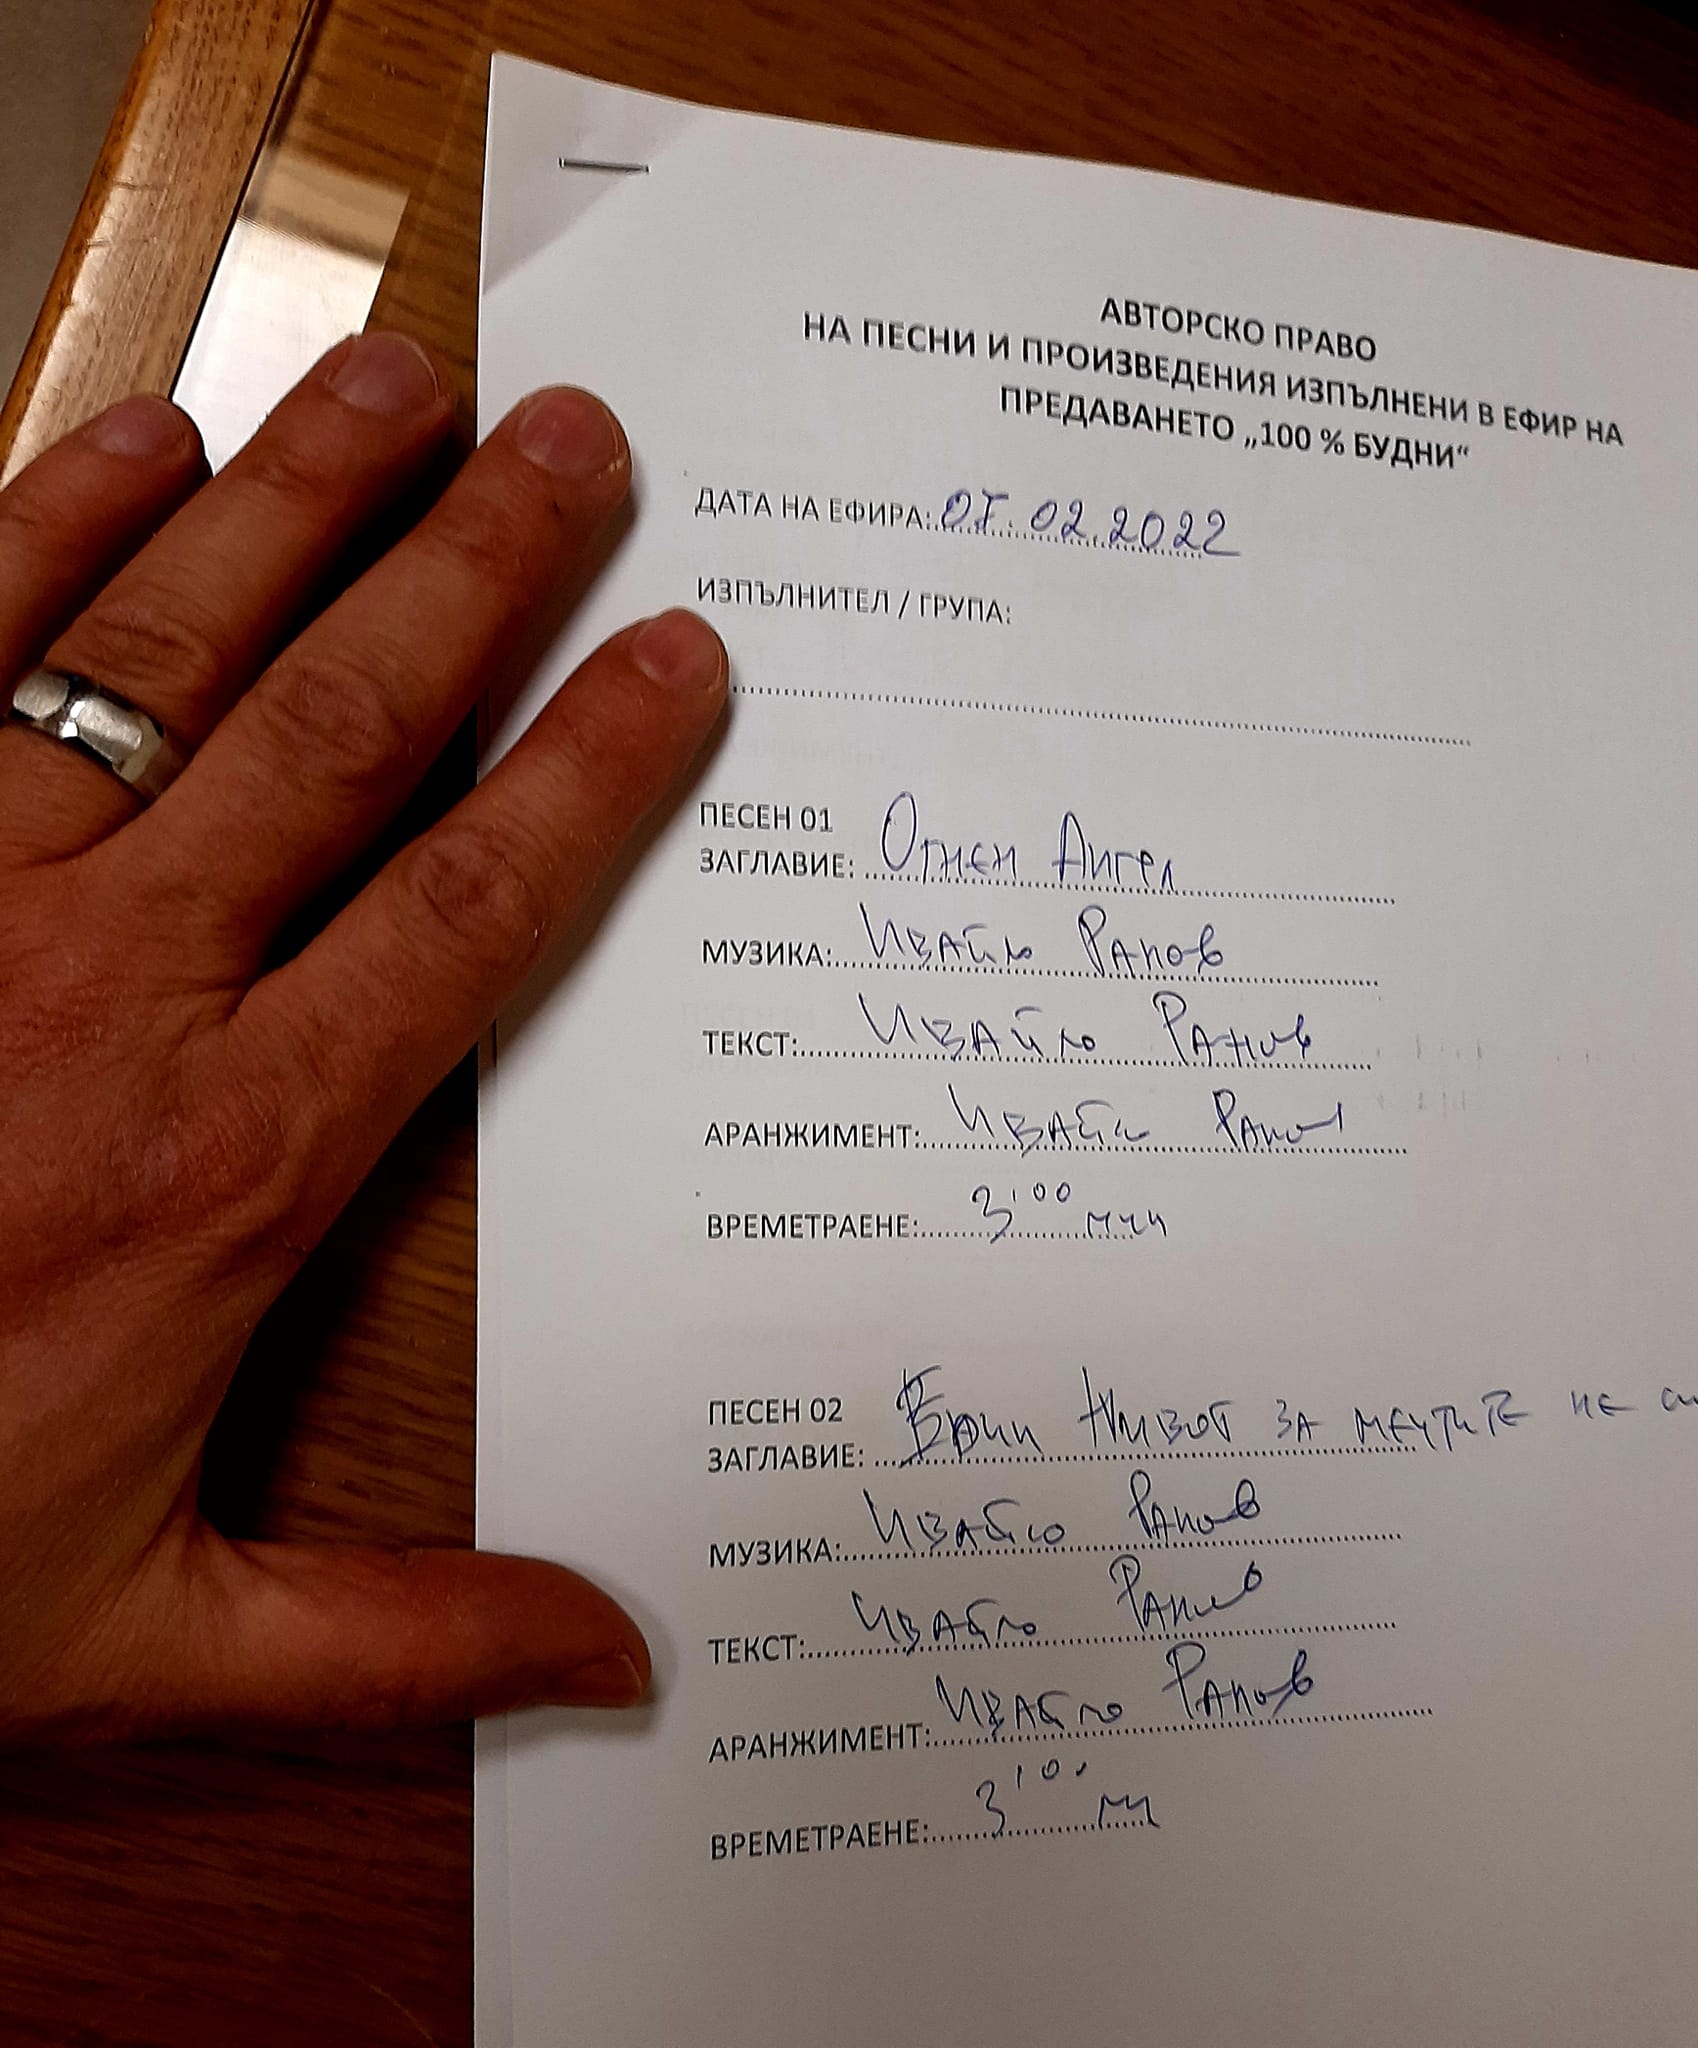 АВТОРСКО ПРАВО
НА ПЕСНИ И ПРОИЗВЕДЕНИЯ ИЗПЪЛНЕНИ В ЕФИР НА
ПРЕДАВАНЕТО „100 % БУДНИ“
ДАТА НА ЕФИРА: 07.02.2022
ИЗПЪЛНИТЕЛ / ГРУПА:
ПЕСЕН 01
ЗАГЛАВИЕ: Огнен Ангел
МУЗИКА: Ивайло Ранов
ТЕКСТ: Ивайло Ранов
АРАНЖИМЕНТ: Ивайло Ранов
ВРЕМЕТРАЕНЕ: 3'00 мин
ПЕСЕН 02
ЗАГЛАВИЕ: Един Живот за мечтите не
МУЗИКА: Ивайло Ранов
ТЕКСТ: Ивайло Ранов
АРАНЖИМЕНТ: Ивайло Ранов
ВРЕМЕТРАЕНЕ: 3'00